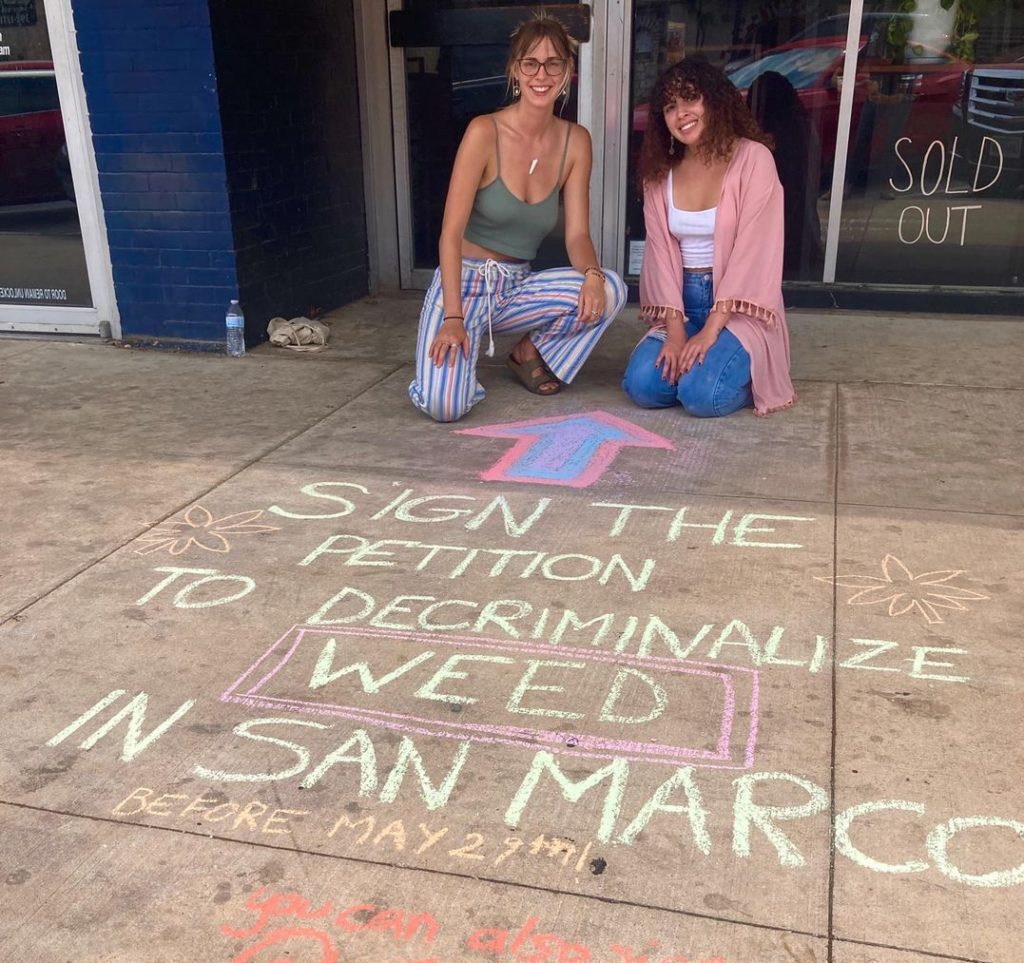 SOLD
OUT
SIGN THE
PETITION
TO DECRIMINALIZE
WEED
IN SAN MARCO
BEFORE MAY 29TH!
you can also